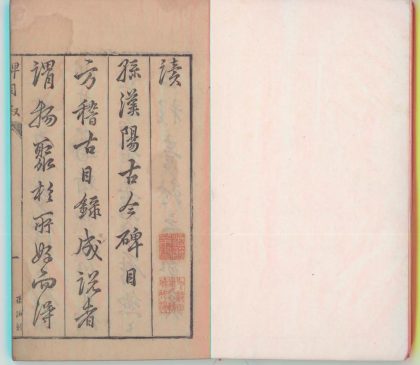 讀
孫漢陽古今碑目
方稽古目錄成說者
謂物聚於所好而得
碑目叙
一